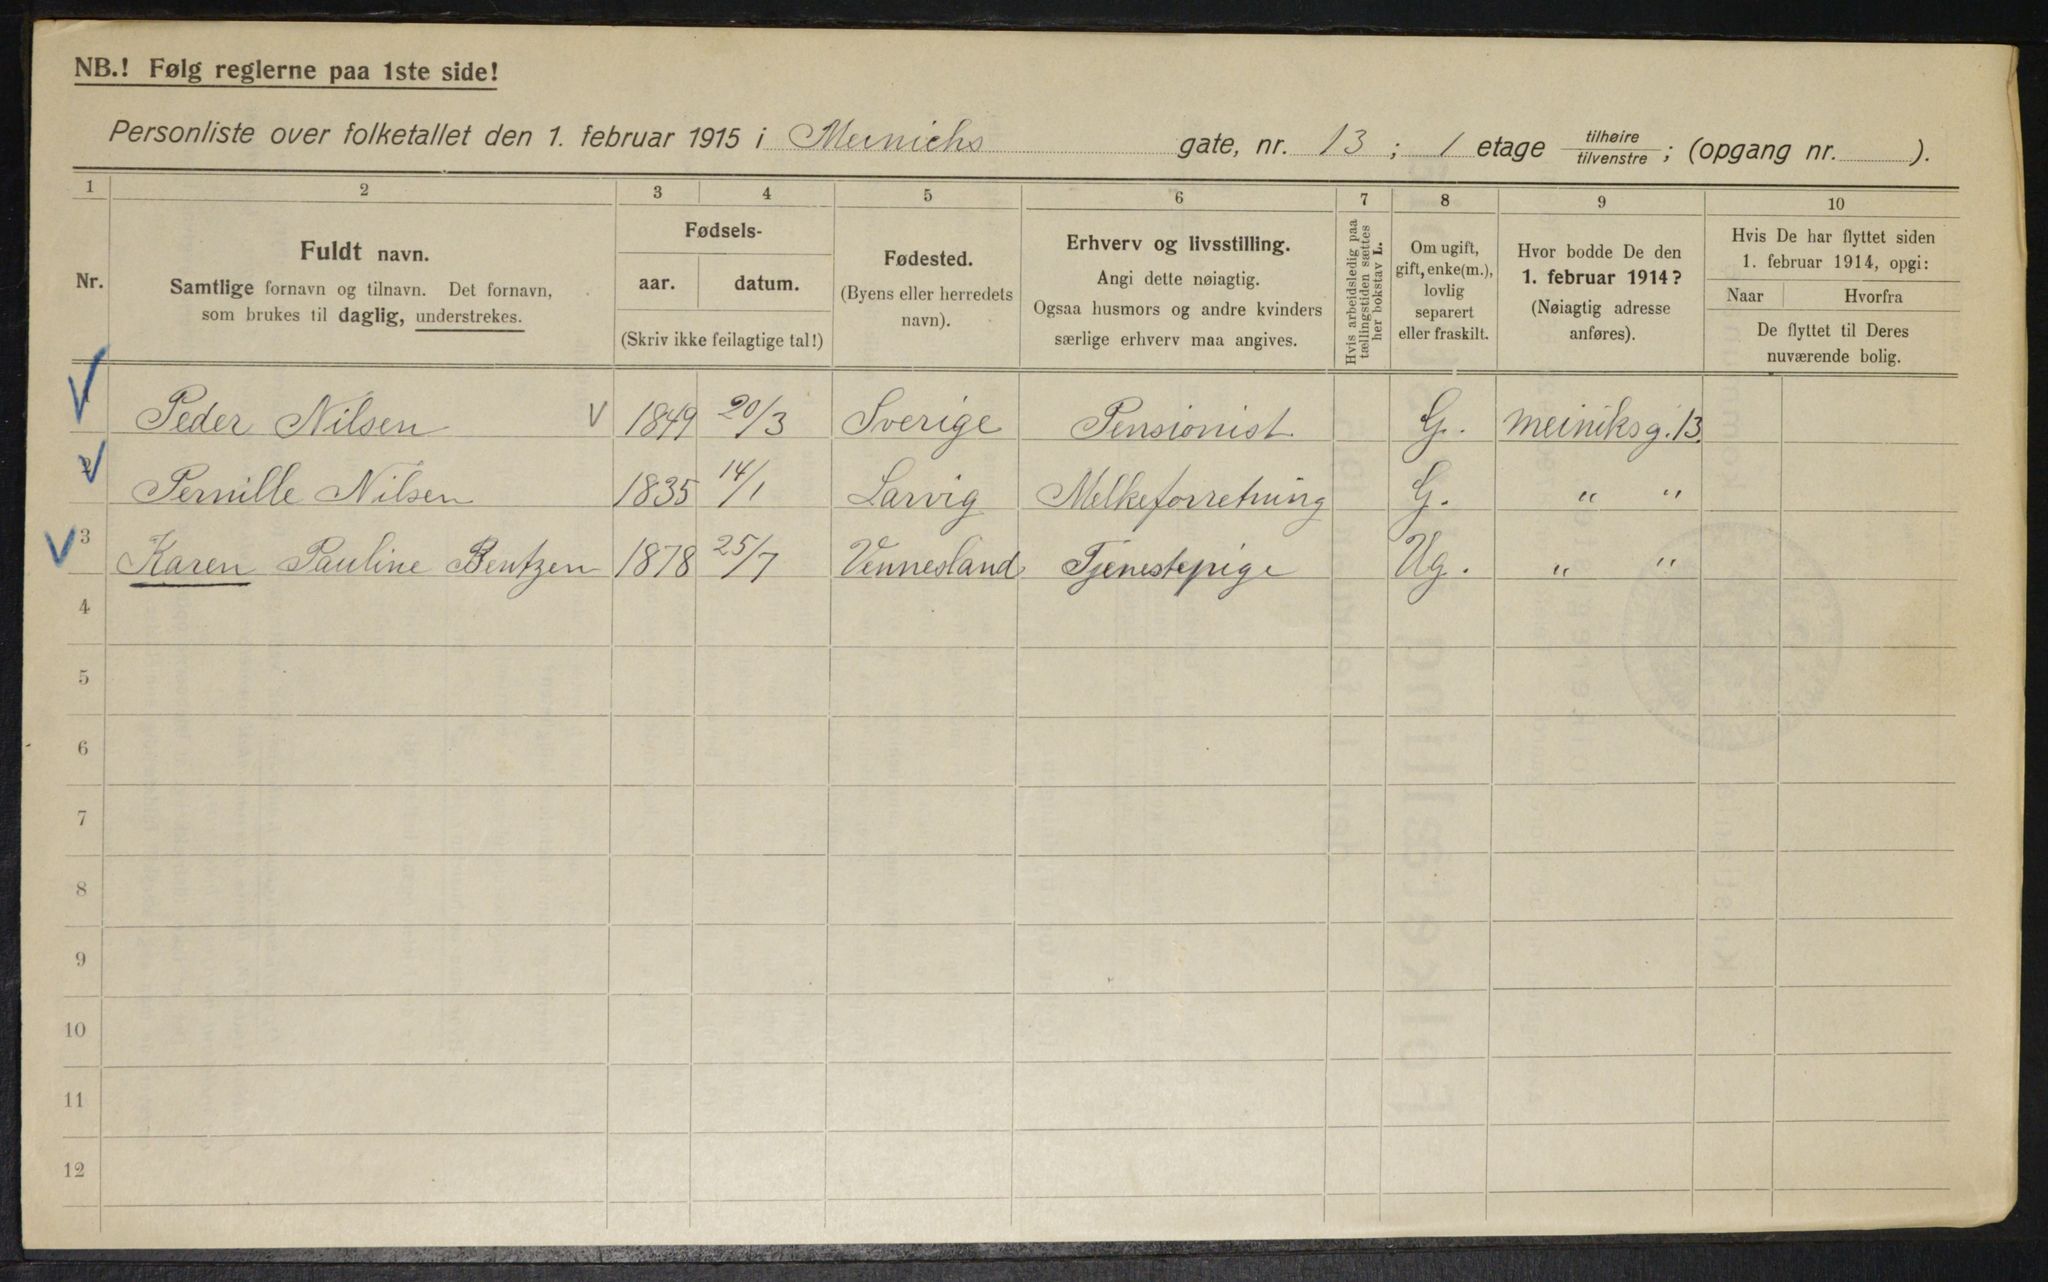 NB.! Følg reglerne paa 1ste side!
Personliste over folketallet den 1. februar 1915 i Meinichs gate, nr. 13 ; 1 etage tilhøire / tilvenstre ; (opgang nr. ).
1 2 3 4 5 6 7 8 9 10
Nr.
Fuldt navn.
Samtlige fornavn og tilnavn. Det fornavn,
som brukes til daglig, understrekes.
Fødsels-
aar. datum.
(Skriv ikke feilagtige tal!)
Fødested.
(Byens eller herredets
navn).
Erhverv og livsstilling.
Angi dette nøiagtig.
Ogsaa husmors og andre kvinders
særlige erhverv maa angives.
Hvis arbeidsledig paa
tællingstiden sættes
her bokstav L.
Om ugift,
gift, enke(m.),
lovlig
separert
eller fraskilt.
Hvor bodde De den
1. februar 1914?
(Nøiagtig adresse
anføres).
Hvis De har flyttet siden
1. februar 1914, opgi:
Naar Hvorfra
De flyttet til Deres
nuværende bolig.
Peder Nilsen 1849 20/3 Sverige Pensionist G. Meiniksg. 13
2 Pernille Nilsen 1835 14/1 Larvig Melkeforretning G. " "
3 Karen Pauline Bentzen 1878 25/7 Vennesland Tjenestepige Ug. " "
4
5
6
7
8
9
10
11
12